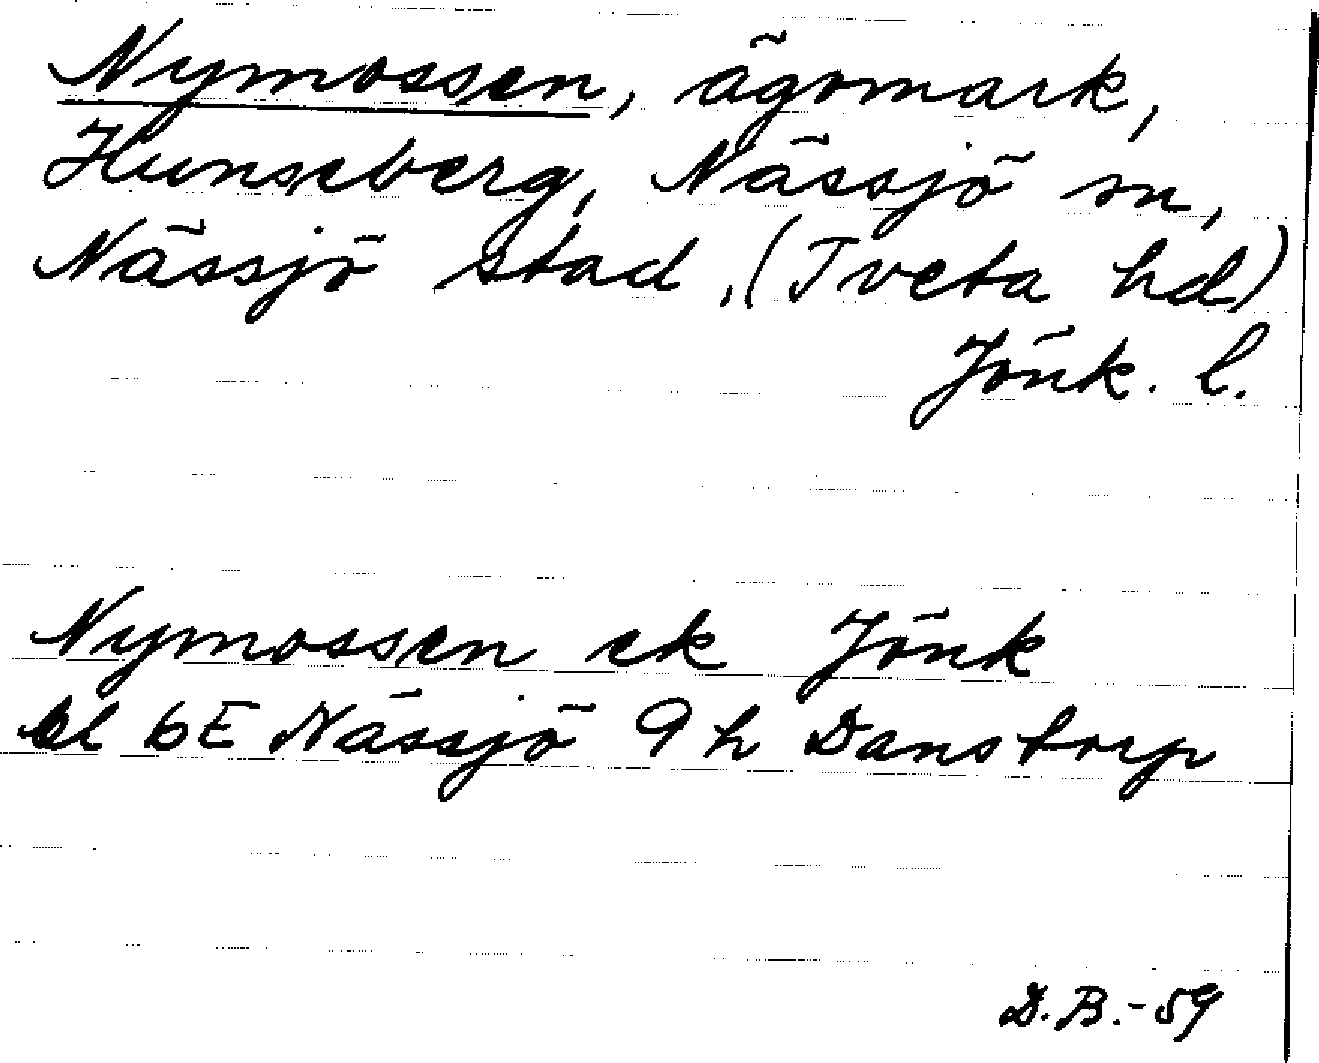 Nymossen, ägomark,
Hunseberg, Nässjö sn,
Nässjö stad, (Tveta hd)
Jönk. l.
Nymossen ek Jönk
bl 6E Nässjö 9 h Danstorp
D.B.-59